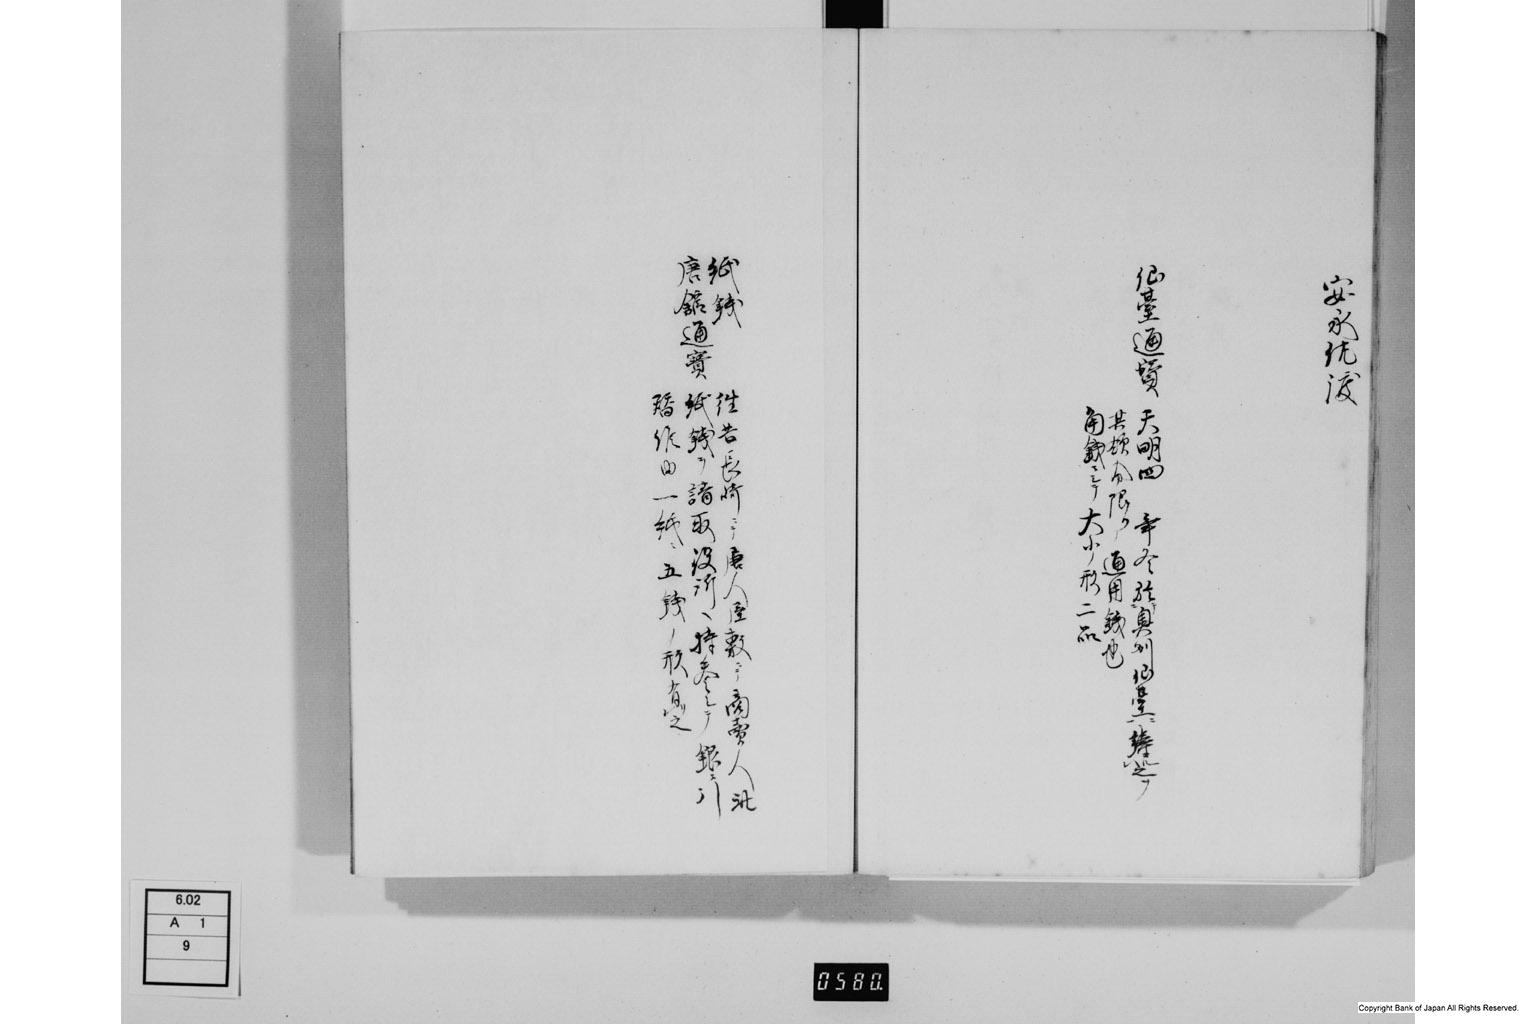 安永
仙臺通寳
天明四 年冬於奥州仙臺ニ鋳之
其領分限リ通用銭也
角銭ニシテ大小ノ形二品
紙銭
唐舘通寳
往昔長崎ニテ唐人屋敷ニテ商賣人
紙銭ヲ請取役所ヘ持参シテ銀ニ引
替作由一紙ニ五銭ノ形有之
6.02
A 1
9
0580.
Copyright Bank of Japan All Rights Reserved.